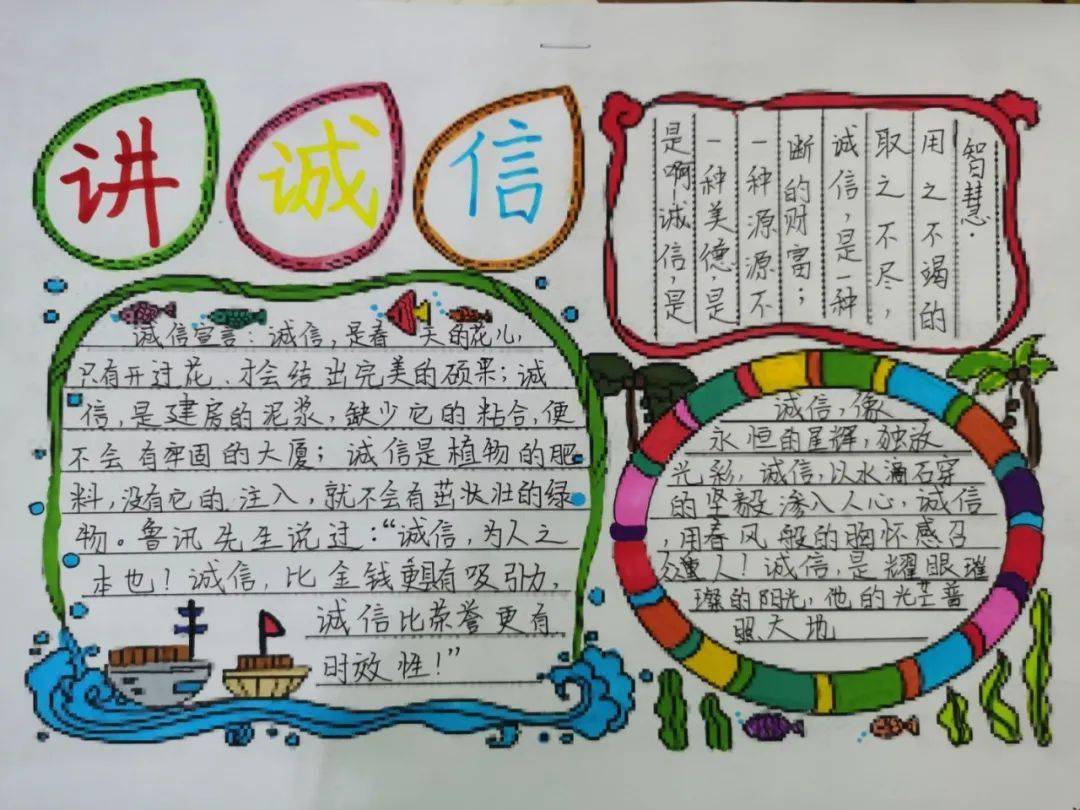 讲诚信
诚信宣言:诚信,是春天的花儿,
只有开过花、才会结出完美的硕果;诚
信,是建房的泥浆,缺少它的粘合,便
不会有牢固的大厦;诚信是植物的肥
料,没有它的注入,就不会有茁状壮的绿
物。鲁讯先生说过:“诚信,为人之
本也!诚信,比金钱更具有吸引力,
诚信比荣誉更有
时效性!”
是啊诚信,是
一种美德,是
一种源源不
断的财富;
诚信,是一种
取之不尽,
用之不竭的
智慧.
诚信,像
永恒的星辉,独放
光彩,诚信,以水滴石穿
的坚毅渗入人心,诚信
,用春风般的胸怀感召
人!诚信,是耀眼璀
璨的阳光,他的光芒普
照大地